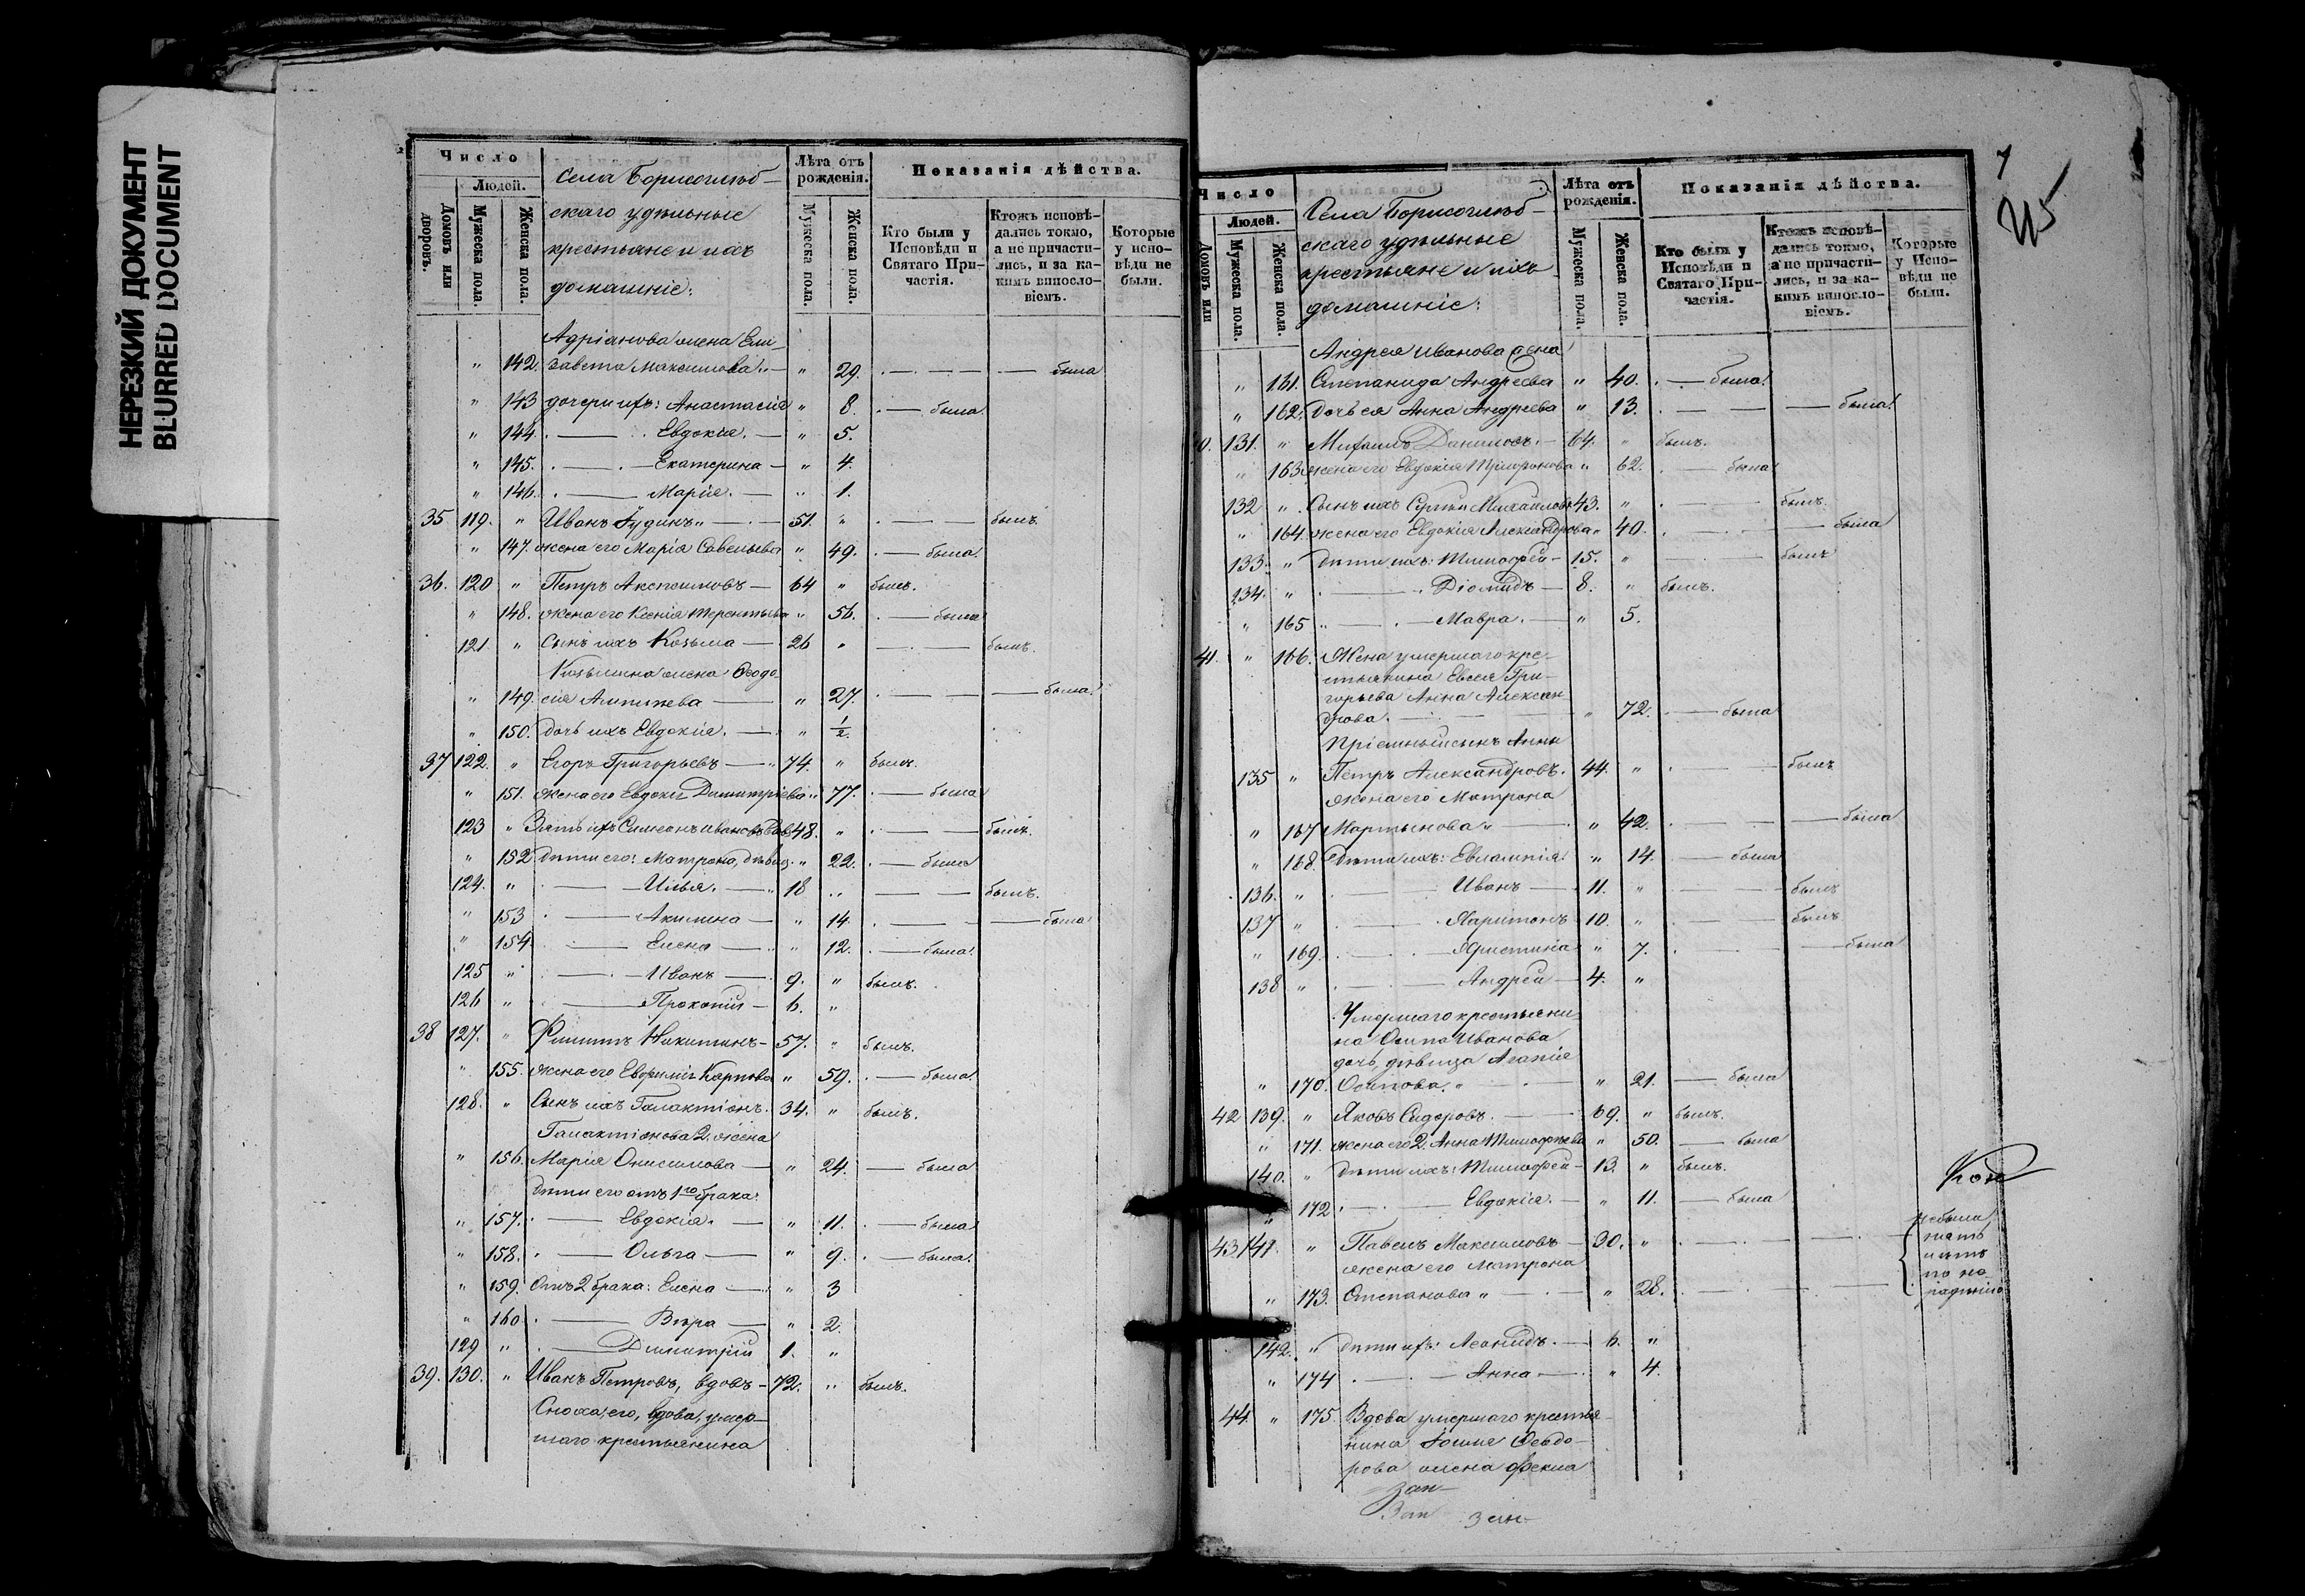 НЕРЕЗКИЙ ДОКУМЕНТ
BLURRED DOCUMENT
Число
Людей.
Домовъ или дворовъ.
Мужеска пола.
Женска пола.
Села Борисоглѣб-
скаго удѣльные
крестьяне и ихъ
домашніе:
Лѣта отъ рожденія.
Мужеска пола.
Женска пола.
Показанія дѣйства.
Кто были у Исповѣди и Святаго Причастія.
Ктожъ исповѣдались токмо, а не причастились, и за какимъ винословіемъ.
Которые у исповѣди не были.
Адріанова жена Ели-
" 142. завета Максимова " — " 29. — была
" 143 дочери ихъ: Анастасія " 8. — была.
" 144. — Евдокія. — " 5.
" 145. — Екатерина — " 4.
" 146. — Марія. — " 1.
35 119. " Иванъ Іудинъ " — 51. " — былъ.
" 147. жена его Марія Савельева " 49. — была.
36. 120 " Петръ — 64 " былъ.
" 148. жена его Ксенія Терентьева " 56. — была
121. " Сынъ ихъ Козьма — 26 " — былъ.
Козьмина жена Ѳеодо-
" 149. сія — " 27. — была.
" 150. дочь ихъ Евдокія. — " 1/2.
37 122. " Егоръ Григорьевъ — 74. " былъ.
" 151. жена его Евдокія Димитріева " 77. — была
123 " Зять ихъ Симеонъ Ивановъ вдов. 48. " — былъ.
" 152 дѣти его: Матрона, дѣвица. " 22. — была
124. " — Илья. — 18 " — былъ.
" 153 — Акилина — " 14. — была
" 154. — Елена — " 12. — была.
125 " — Иванъ — 9. " былъ.
126 " — Прокопій — 6. "
38 127. " Филиппъ Никитинъ — 57. " былъ.
" 155. жена его Евфимія Карпова " 59. — была.
128. " Сынъ ихъ Галактіонъ. 34. " былъ.
Галактіонова 2. жена
" 156. Марія Онисимова — " 24. — была
дѣти его отъ 1го брака:
" 157. — Евдокія. — " 11. — была
" 158. — Ольга — " 9. — была.
" 159. Отъ 2 брака: Елена — " 3
" 160 — Вѣра — " 2.
129 " — Димитрій 1. "
39. 130. " Иванъ Петровъ, вдовъ — 72. " былъ.
Сноха его, вдова, умер-
шаго крестьянина
7
Число
Людей.
Домовъ или
Мужеска пола.
Женска пола.
Села Борисоглѣб-
скаго удѣльные
крестьяне и ихъ
домашніе:
Лѣта отъ рожденія.
Мужеска пола.
Женска пола.
Показанія дѣйства.
Кто были у Исповѣди и Святаго Причастія.
Ктожъ исповѣдались токмо, а не причастились, и за какимъ винословіемъ.
Которые у Исповѣди не были.
Андрея Иванова жена
" 161. Степанида Андреева " 40. — была.
" 162. Дочь ея Анна Андреева " 13. — была.
0. 131. " Михаилъ Даниловъ. — 64. " былъ.
" 163 жена его Евдокія " 62. — была
132 " Сынъ ихъ Сергѣй Михайловъ 43. " — былъ.
" 164. жена его Евдокія Александрова " 40. — была
133. " Дѣти ихъ: Тимофей — 15. " — былъ
134. " — Діомидъ — 8. " былъ.
" 165 — Мавра. — " 5.
41. " 166. Жена умершаго кре-
стьянина Евсея Гри-
горьева Анна Алексан-
дрова. — " 72. — была
Пріемный сынъ Анны
135 " Петръ Александровъ. 44. " — былъ
жена его Матрона
" 167 Мартынова " — " 42. — была
" 168. Дѣти ихъ: Евлампія " 14. — была
136. " — Иванъ — 11. " — былъ
137 " — Харитонъ 10. " — былъ
" 169. — Христина " 7. — была
138 " — Андрей — 4. "
Умершаго крестьяни-
на Осипа Иванова
дочь, дѣвица Агапія
" 170. Осипова. — " 21. — была
42 139. " Яковъ Сидоровъ. — 69. " былъ.
" 171. жена его 2. Анна Тимофеева " 50. — была
140. " Дѣти ихъ: Тимофей — 13. " былъ.
" 172 — Евдокія. — " 11. — была
43 141. " Павелъ Максимовъ — 30. " —
жена его Матрона
" 173. Степанова " — " 28. —
142. " дѣти ихъ: Леонидъ. — 6. "
" 174 — Анна — " 4.
44 " 175. Вдова умершаго крестья-
нина Ѳеодо-
рова жена Фекла
зап
Зап зап